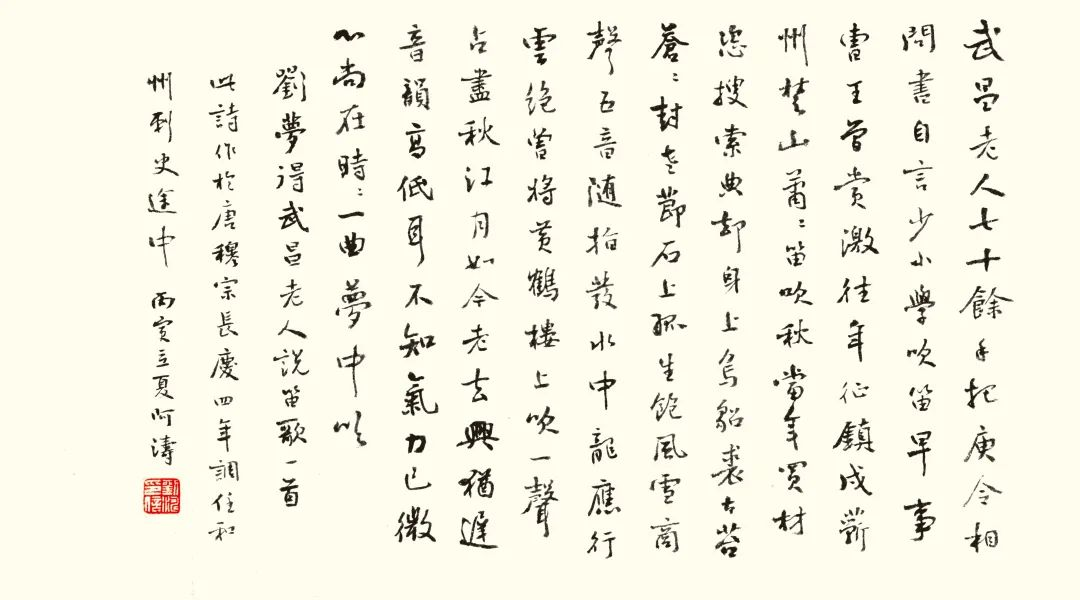 武昌老人七十餘手把庾令相
問書自言少小學吹笛早事
曹王曾賞激往年征鎮戍蘄
州楚山蕭〻笛吹秋當年買材
恣搜索典却身上烏貂裘古苔
蒼〻封老節石上孤生飽風雪商
聲五音随指發水中龍應行
雲絶曾將黄鶴樓上吹一聲
占盡秋江月如今老去興猶遲
音韻高低耳不知氣力已微
心尚在時〻一曲夢中吹
劉夢得武昌老人説笛歌一首
此詩作於唐穆宗長慶四年調任和
州刺史途中 丙寅立夏阿濤